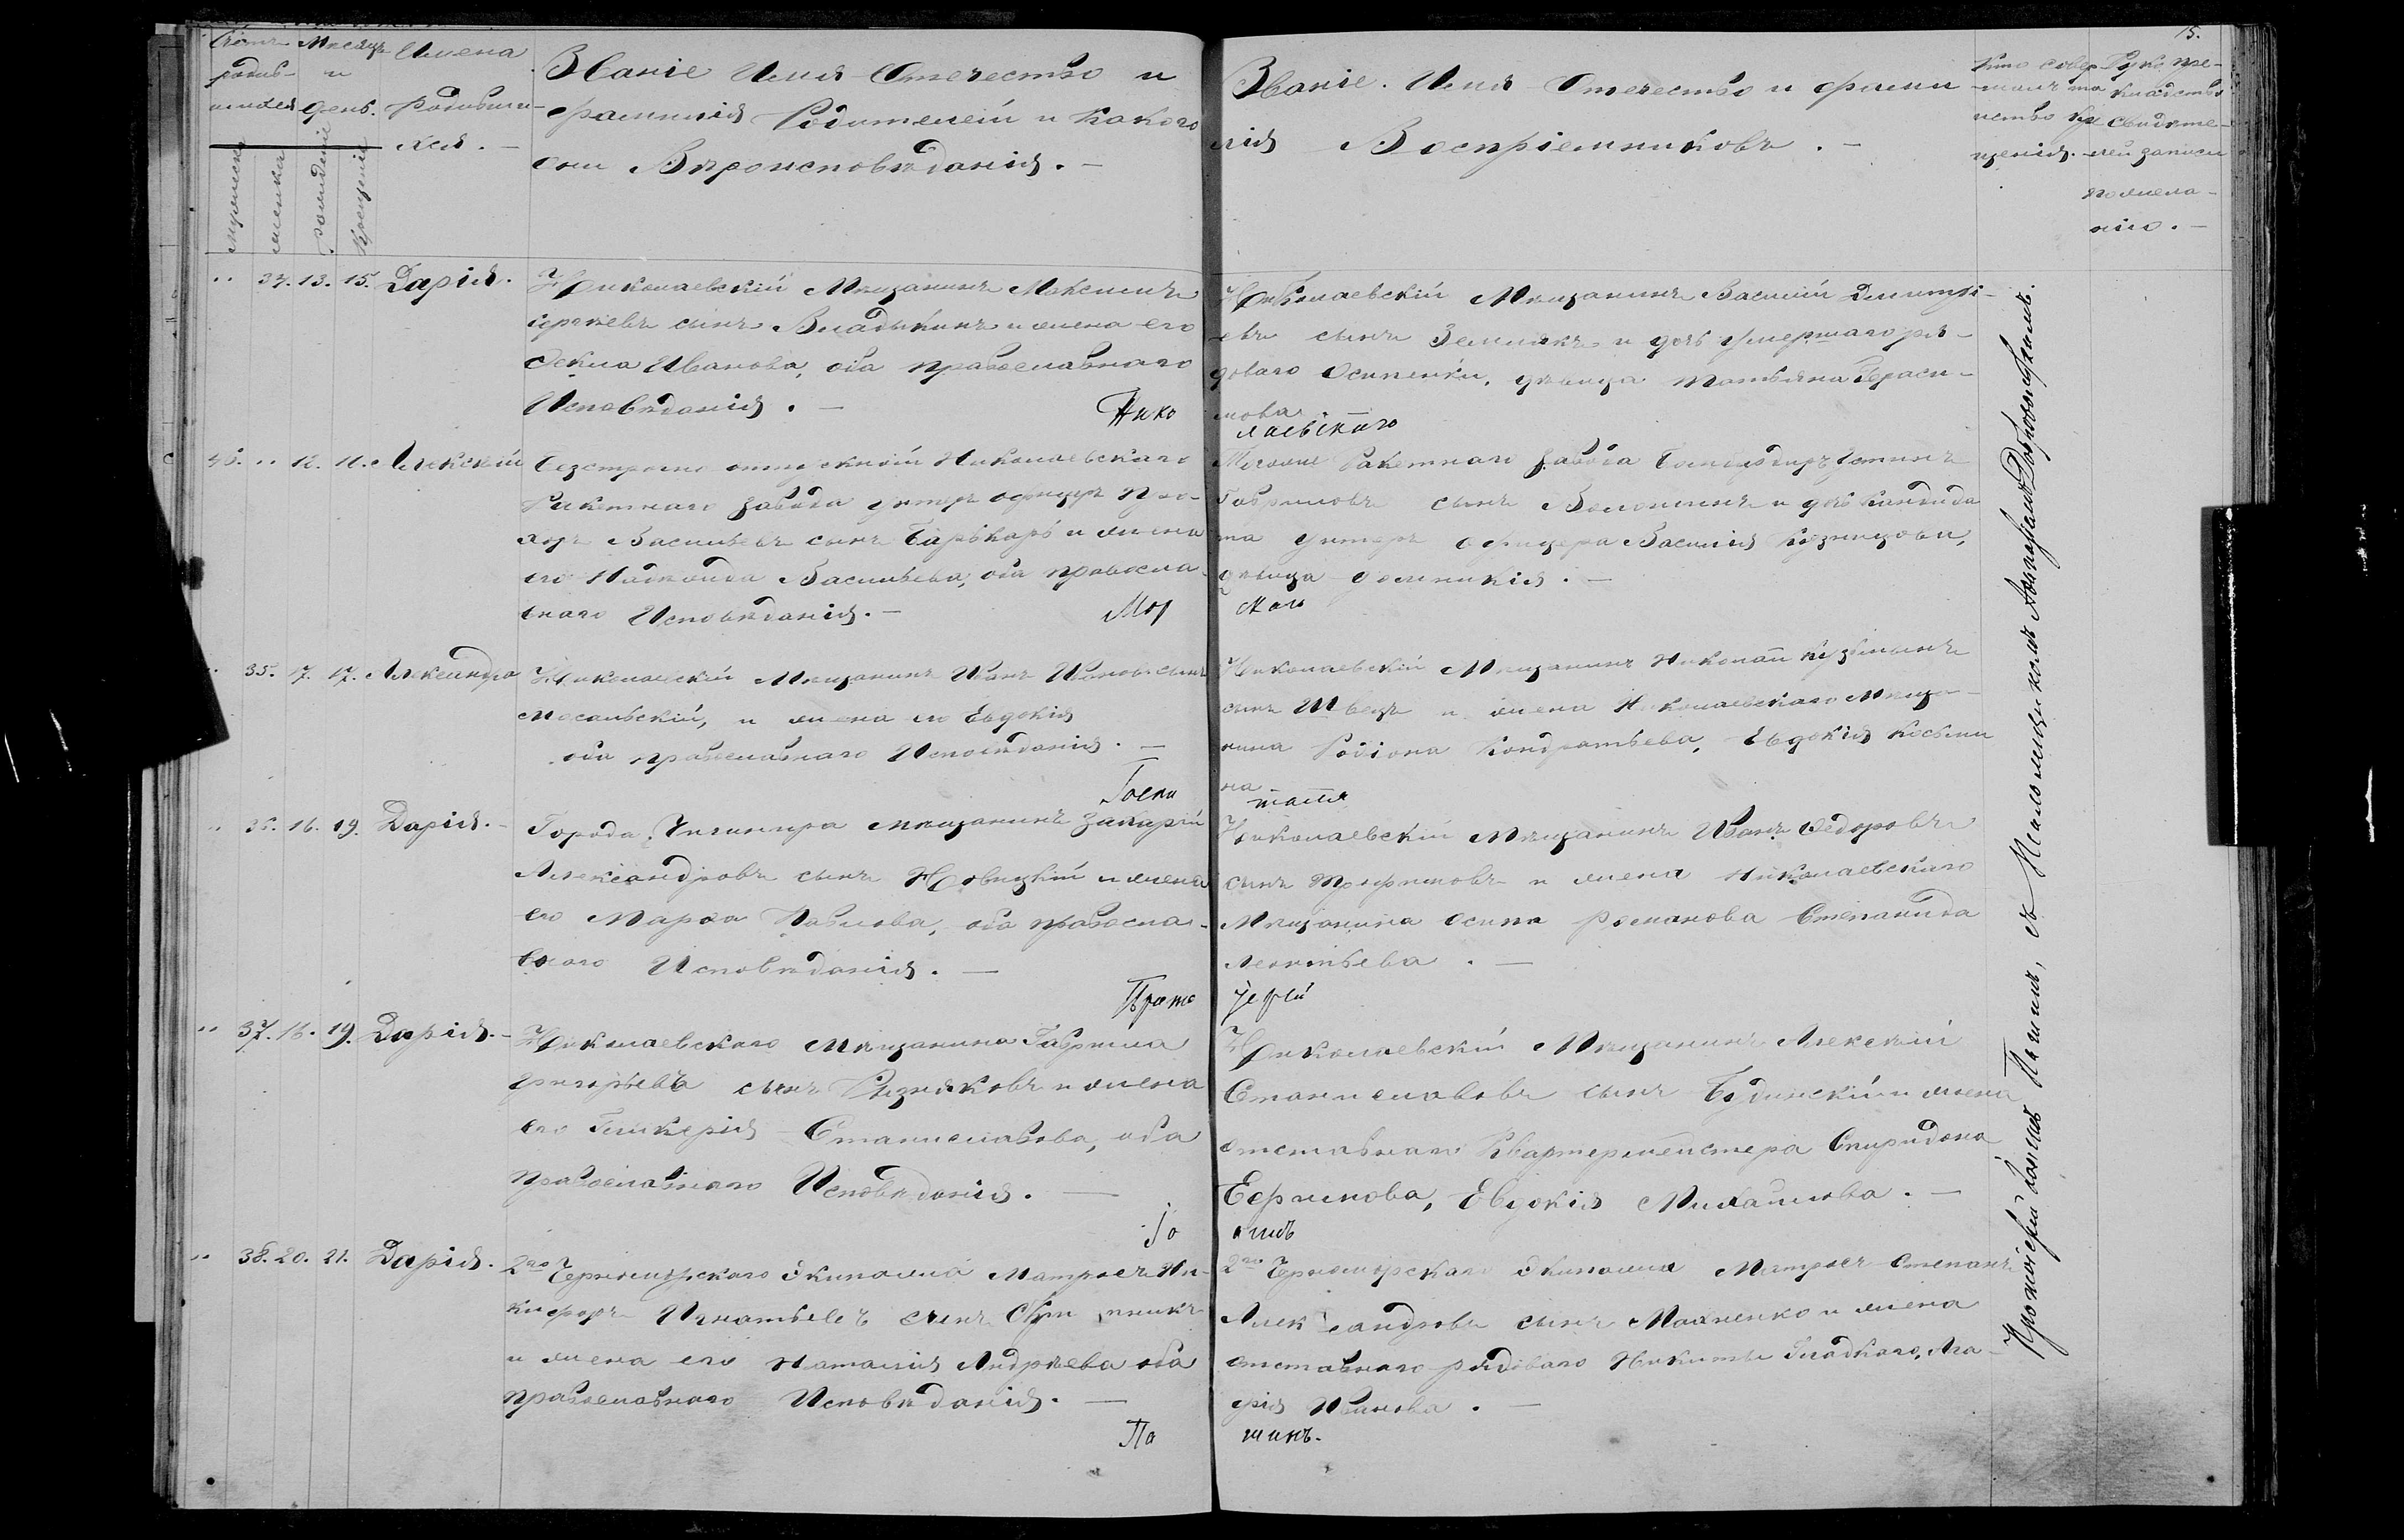 15.
Счетъ родив-шихся
мужеска
женска
Месяцъ и день.
рожденіе
крещеніе
Имена Родивши-хся. —
Званіе Имя Отечество и
фамилія Родителей и Какого
они Вероисповѣданія. —
Званіе. Имя Отечество и фами
лія Воспріемниковъ. —
Кто совер-
шалъ та
инство кре
щенія.
Руко при-
кладство
свидѣте-
лей записи
по жела-
нію. —
.. 34. 13. 15. Дарія.
Николаевскій Мѣщанинъ Максимъ
сергѣевъ сынъ Владыкинъ и жена его
Фекла Иванова, оба православнаго
Исповѣданія. —
Нико
Николаевскій Мѣщанинъ Василій Дмитрі-
евъ сынъ Землякъ и дочь умершаго ря-
доваго Осипенки, дѣвица Татьяна Гераси-
мова
лаевскаго
46. .. 12. 11. Алексѣй
безсрочно отпускной Николаевскаго
Ракетнаго завода унтеръ офицеръ
Васильевъ сынъ и жена
его Васильева, оба правосла-
внаго Исповѣданія. —
Мор
Ракетнаго завода Устинъ
Гавриловъ сынъ Волошинъ и дочь Кандида
та унтеръ офицера Василія Кузнецова,
дѣвица —
скаго
.. 35. 17. 17. Александра
Николаевскій Мѣщанинъ Иванъ Ивановъ сынъ
Мосальскій, и жена его Евдокія
оба православнаго Исповѣданія. —
Госпи
Николаевскій Мѣщанинъ Николай Кузьминъ
сынъ Швецъ и жена Николаевскаго Мѣща-
нина Родіона Кондратьева, Евдокія Косьми
на
таля
.. 36. 16. 19. Дарія. —
Города Чигирина мѣщанинъ Захарій
Александровъ сынъ Новицкій и жена
его Марѳа Павлова, оба правосла-
внаго Исповѣданія. —
Прото
Николаевскій Мѣщанинъ Иванъ Федоровъ
сынъ Трифиловъ и жена Николаевскаго
Мѣщанина Осипа Романова Степанида
Леонтьева. —
іерей
.. 37. 16. 19. Дарія. —
Николаевскаго Мѣщанина Гавріила
григорьева сынъ Резниковъ и жена
его Гликерія Станиславова, оба
православнаго Исповѣданія. —
Іо
Николаевскій Мѣщанинъ Алексѣй
Станиславовъ сынъ Будинскій и жена
отставнаго Квартермейстера Спиридона
Евдокія Михайлова. —
аннъ
.. 38. 20. 21. Дарія.
2го Черноморскаго Экипажа Матросъ Ни-
кифоръ Игнатьевъ сынъ
и жена его Наталія Андрѣева оба
православнаго Исповѣданія. —
Па
2го Черноморскаго Экипажа Матросъ Степанъ
Александровъ сынъ и жена
отставнаго рядоваго Никиты Гладкаго, Ага-
фія Иванова. —
шинъ.
Протоіерей Іоаннъ Пашинъ, съ Псаломщикомъ